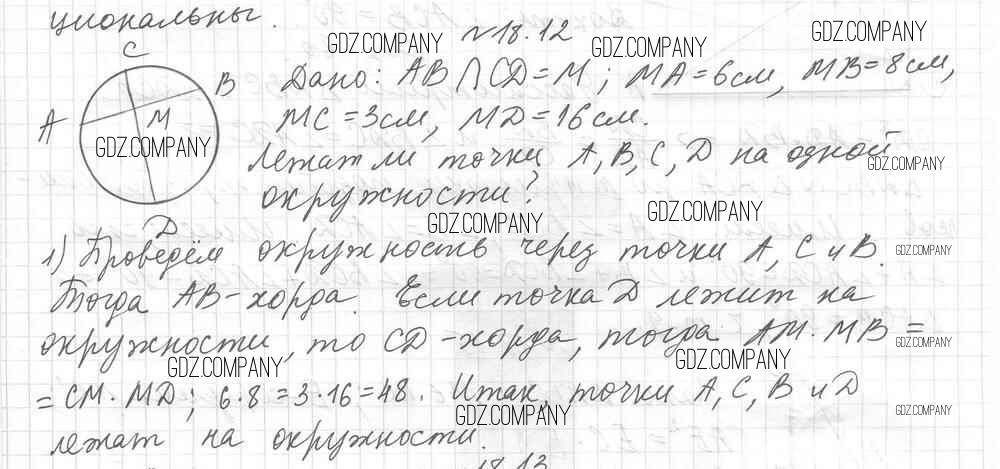 циональны.
№18.12
GDZ.COMPANY GDZ.COMPANY GDZ.COMPANY
C
B
A
M
D
GDZ.COMPANY
Дано: AB ∩ CD = M; MA = 6см, MB = 8см,
MC = 3см, MD = 16см.
Лежат ли точки A, B, C, D на одной
GDZ.COMPANY
окружности?
GDZ.COMPANY GDZ.COMPANY
1) Проведём окружность через точки A, C и B.
GDZ.COMPANY
Тогда AB - хорда. Если точка D лежит на
окружности, то CD - хорда, тогда AM · MB =
GDZ.COMPANY
GDZ.COMPANY GDZ.COMPANY
= CM · MD; 6·8 = 3·16 = 48. Итак, точки A, C, B и D
GDZ.COMPANY GDZ.COMPANY
лежат на окружности.
18.13